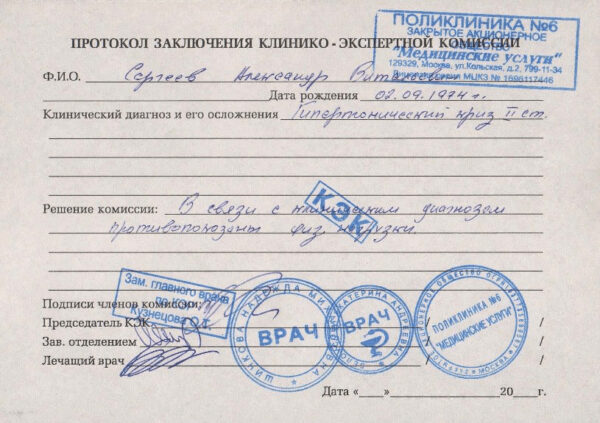 ПОЛИКЛИНИКА №6
ЗАКРЫТОЕ АКЦИОНЕРНОЕ
ОБЩЕСТВО
"Медицинские услуги"
129329, Москва, ул.Кольская, д.2, 799-11-34
МЦКЗ № 1696117446
ПРОТОКОЛ ЗАКЛЮЧЕНИЯ КЛИНИКО - ЭКСПЕРТНОЙ КОМИССИИ
Ф.И.О. Сергеев Александр
Дата рождения 02.09.1974 г.
Клинический диагноз и его осложнения Гипертонический криз II ст.
Решение комиссии: В связи с клиническим диагнозом
противопоказаны физ нагрузки.
КЭК
Зам. главного врача
по КЭР
Кузнецова О.Т.
Подписи членов комиссии:
Председатель КЭК /
Зав. отделением /
Лечащий врач /
ВРАЧ
НАДЕЖДА
ВРАЧ
ЕКАТЕРИНА АНДРЕЕВНА
ПОЛИКЛИНИКА №6
"МЕДИЦИНСКИЕ УСЛУГИ"
МОСКВА
Дата «____» 20____г.